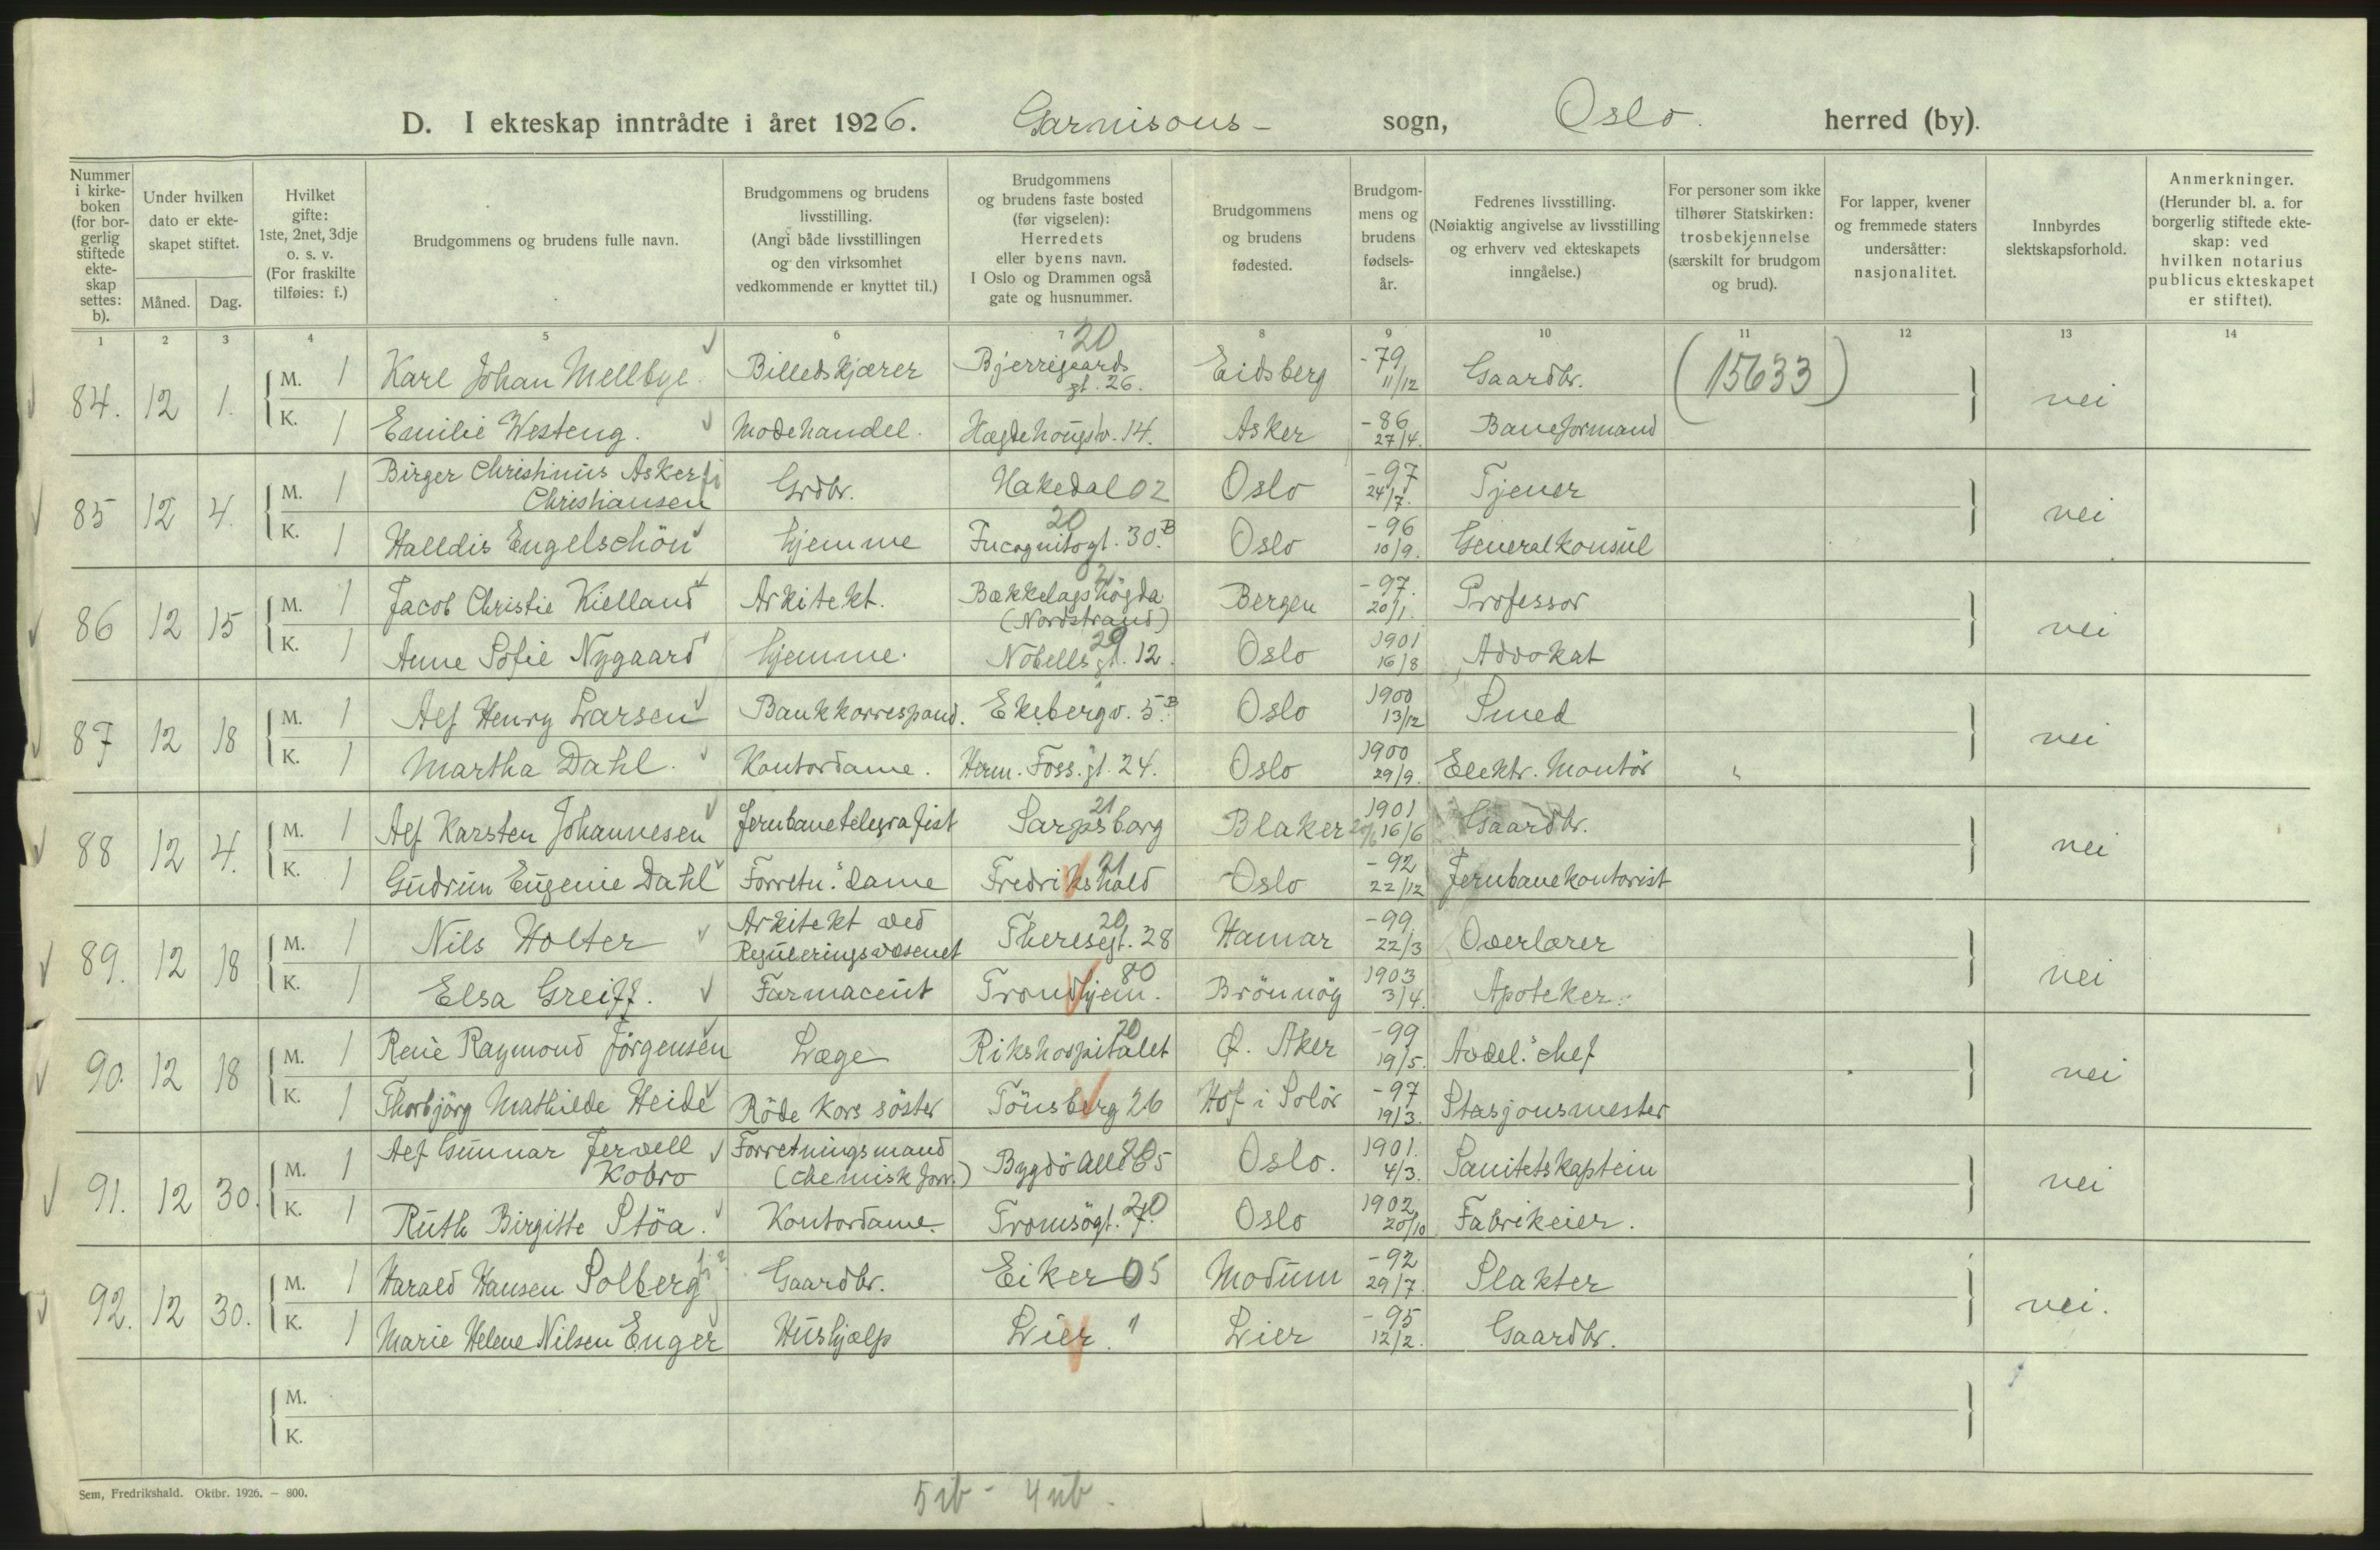 D. I ekteskap inntrådte i året 1926. Garnisons- sogn, Oslo. herred (by).
Nummer i kirke-boken (for bor-gerlig stiftede ekte-skap settes: b).
Under hvilken dato er ekte-skapet stiftet.
Måned. Dag.
Hvilket gifte: 1ste, 2net, 3dje o. s. v. (For fraskilte tilføies: f.)
Brudgommens og brudens fulle navn.
Brudgommens og brudens livsstilling. (Angi både livsstillingen og den virksomhet vedkommende er knyttet til.)
Brudgommens og brudens faste bosted (før vigselen): Herredets eller byens navn. I Oslo og Drammen også gate og husnummer.
Brudgommens og brudens fødested.
Brudgom-mens og brudens fødsels-år.
Fedrenes livsstilling. (Nøiaktig angivelse av livsstilling og erhverv ved ekteskapets inngåelse.)
For personer som ikke tilhører Statskirken: trosbekjennelse (særskilt for brudgom og brud).
For lapper, kvener og fremmede staters undersåtter: nasjonalitet.
Innbyrdes slektskapsforhold.
Anmerkninger. (Herunder bl. a. for borgerlig stiftede ekte-skap: ved hvilken notarius publicus ekteskapet er stiftet).
1 2 3 4 5 6 7 8 9 10 11 12 13 14
84. 12 1. M. 1 Karl Johan Mellbye. Billedskjærer 20 Bjerregaards gt. 26. Eidsberg -79 11/12 Gaardbr. (15633) nei
K. 1 Emilie Westeng. Modehandel. Hægdehougsv. 14. Asker -86 27/4. Baneformand
85 12 4. M. 1 Birger Christinus Asker Christiansen Grdbr. Hakedal 02 Oslo -97 24/7. Tjener nei
K. 1 Halldis Engelschön hjemme 20 Incognitogt. 30.B Oslo -96 10/9. Generalkonsul
86 12 15 M. 1 Jacob Christie Kielland Arkitekt. Bækkelagshögda (Nordstrand) Bergen -97. 20/1. Professor nei
K. 1 Anne Sofie Nygaard hjemme. 20 Nobells gt. 12. Oslo 1901 16/8 Advokat
87 12 18 M. 1 Alf Henry Larsen Bankkorrespond. Ekebergv. 5.B Oslo 1900 13/12 Smed nei
K. 1 Martha Dahl. Kontordame. Herm. Foss. gt. 24. Oslo 1900 29/9. Elektr. Montör
88 12 4. M. 1 Alf Karsten Johannesen Jernbanetelegrafist 21 Sarpsborg Blaker 1901 16/6 Gaardbr. nei
K. 1 Gudrun Eugenie Dahl Forretn.s dame 21 Fredrikshald Oslo -92 22/12 Jernbanekontorist
89. 12 18 M. 1 Nils Holter Arkitekt ved Reguleringsvæsenet 20 Theresegt. 28 Hamar -99 22/3 Overlærer nei
K. 1 Elsa Greiff. Farmaceut 80 Trondhjem. Brönnöy 1903 3/4. Apoteker.
90. 12 18 M. 1 Renè Raymond Jörgensen Læge 20 Rikshospitalet Ø. Aker -99 19/5. Avdel.s chef nei
K. 1 Thorbjörg Mathilde Heide Röde Kors söster Tönsberg 26 Hof i Solör -97 19/3. Stasjonsmester
91. 12 30. M. 1 Alf Gunnar Jervell Kobro Forretningsmand (chemisk forr.) 20 Bygdö allé 65 Oslo. 1901. 4/3. Sanitetskaptein nei
K. 1 Ruth Birgitte Stöa. Kontordame. 20 Tromsögt. Oslo 1902 20/10 Fabrikeier.
92. 12 30. M. 1 Harald Hansen Solberg Gaardbr. Eiker 05 Modum -92 29/7. Slakter nei.
K. 1 Marie Helene Nilsen Enger Hushjælp Lier. 1 Lier -95 12/2. Gaardbr.
M.
K.
Sem, Fredrikshald. Oktbr. 1926. — 800.